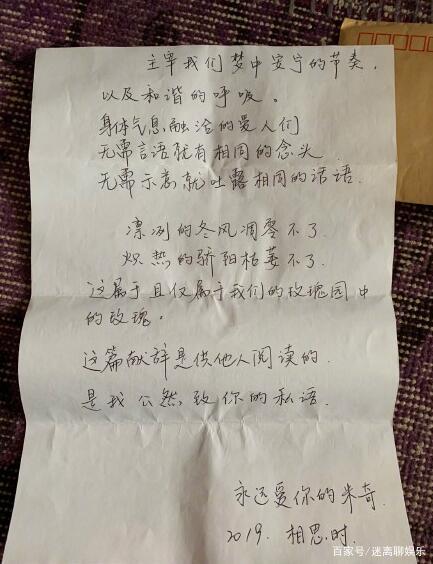 主宰我们梦中安宁的节奏，
以及和谐的呼吸。
身体气息融洽的爱人们
无需言语就有相同的念头
无需示意就吐露相同的话语.
凛冽的冬风凋零不了.
炽热的骄阳枯萎不了.
这属于且仅属于我们的玫瑰园中
的玫瑰。
这篇献辞是供他人阅读的.
是我公然致你的私语.
永远爱你的米奇.
2019. 相思时.
百家号/迷离聊娱乐